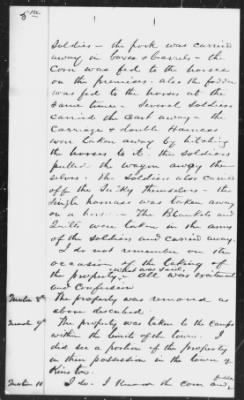 Soldiers - the pork was carried
away in boxes & barrels - the
Corn was fed to the horses
on the premises. also the fodder
was fed to the horses at the
same time - Several Soldiers
carried the away - the
Carriage & double Harness
were taken away by hitching
the horses to it. the Soldiers
pulled the wagon away them
selves. the Soldiers also carried
off the Sulky themselves - the
Single harness was taken away
on a horse - The Blankets and
Quilts were taken in the arms
of the Soldiers and carried away.
I do not remember on the
occasion of the taking of
the property, what was said, All was excitement
and Confusion
Question 8th The property was removed as
above described.
Question 9th The property was taken to the camps
within the limits of the town. I
did see a portion of the property
in their possession in the town of
Kinston.
Question 10 I do. I know the corn and fodder